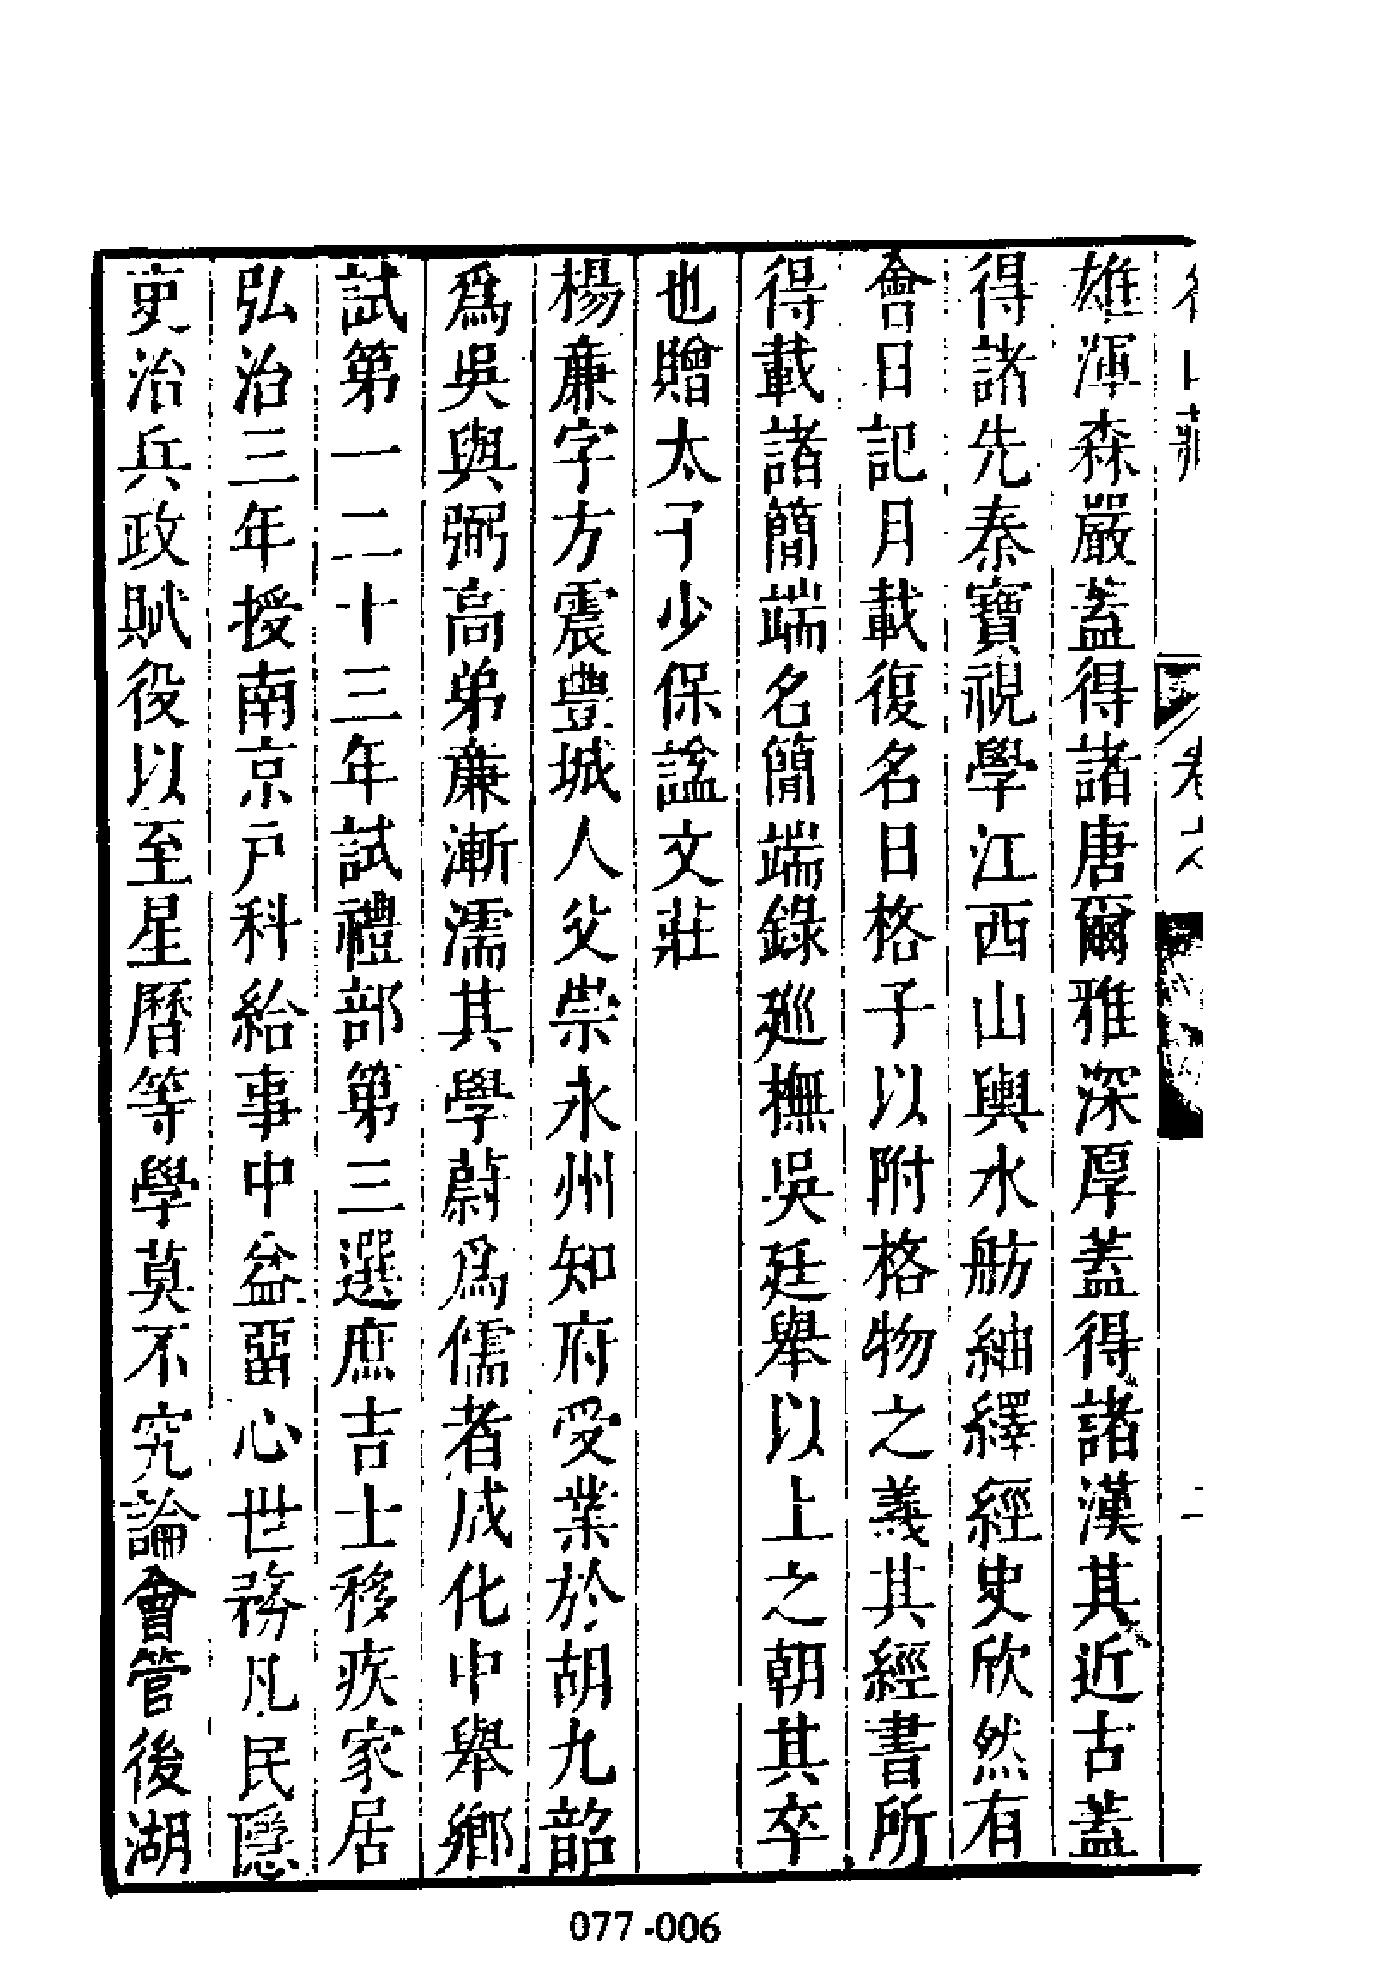 雄渾森嚴蓋得諸唐爾雅深厚蓋得諸漢其近古蓋
得諸先秦寶視學江西山輿水舫紬繹經史欣然有
會日記月載復名日格子以附格物之義其經書所
得載諸簡端名簡端錄廵撫吳廷舉以上之朝其卒
也贈太子少保諡文莊
楊亷字方震豊城人父崇永州知府受業於胡九韶
爲吳與弼高弟亷漸濡其學蔚爲儒者成化中舉鄉
試第一二十三年試禮部第三選庶吉士移疾家居
弘治三年授南京戸科給事中益畱心世務凡民隱
吏治兵政賦役以至星曆等學莫不究論會管後湖
077-006